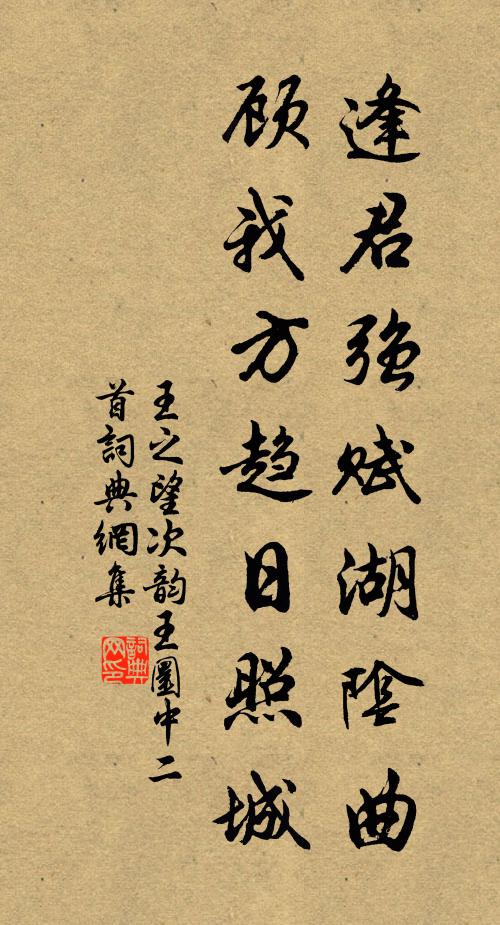 逢君強赋湖陰曲
顾我方趋日照城
王之望次韵王圖中二
首詞典網集
詞典网印